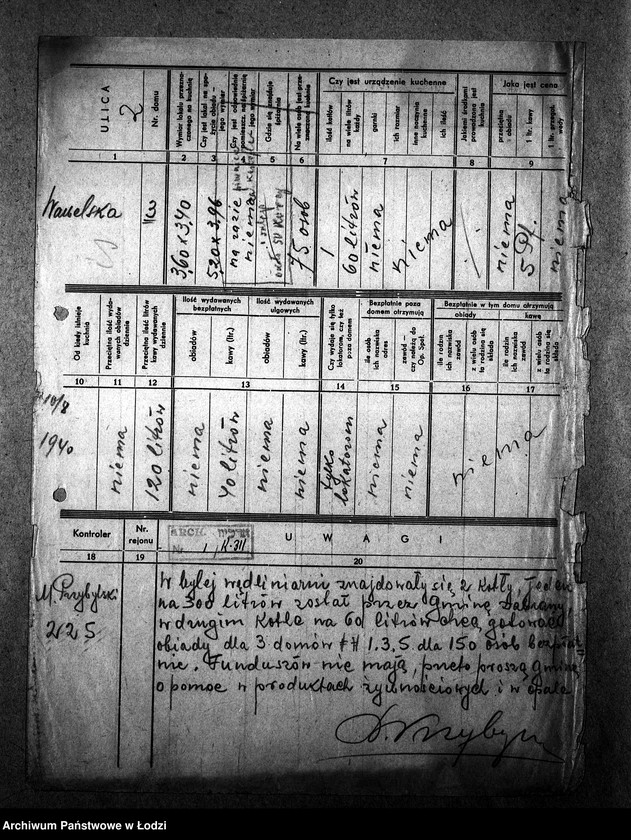 ULICA
2
Nr. domu
Wymiar lokalu przezna-
czonego na kuchnię
Czy jest lokal na spo-
życie obiadu —
jego wymiar
Czy jest odpowiednie
pomieszcz. na spiżarnię
jego wymiar
Gdzie się znajduje
spiżarnia
Na wiele osób jest prze-
znaczona kuchnia
Czy jest urządzenie kuchenne
ilość kotłów
na wiele litrów
każdy
garnki
ich rozmiar
inne naczynia
kuchenne
ich ilość
Jakiemi środkami
prowadzona jest
kuchnia
Jaka jest cena
przeciętna
obiadu
1 ltr. kawy
1 ltr. przegot.
wody
1 2 3 4 5 6 7 8 9
3,60 x 3,40
5,20 x 3,96
na razie
niema
75 osób
1
60 litrów
niema
niema
niema
5 Pf.
niema
Od kiedy istnieje
kuchnia
Przeciętna ilość wyda-
wanych obiadów
dziennie
Przeciętna ilość litrów
kawy wydawanych
dziennie
Ilość wydawanych
bezpłatnych
obiadów
kawy (ltr.)
Ilość wydawanych
ulgowych
obiadów
kawy (ltr.)
Czy wydaje się tylko
lokatorom, czy też
poza domem
Bezpłatnie poza
domem otrzymują
ile osób
ich nazwiska
adres
zawód —
czy należą do
Op. Społ.
Bezpłatnie w tym domu otrzymują
obiady
kawę
ile rodzin
ich nazwiska
zawód
z wielu osób
ta rodzina się
składa
ile rodzin
ich nazwiska
zawód
z wielu osób
ta rodzina się
składa
10 11 12 13 14 15 16 17
10/8
1940
niema
120 litrów
niema
40 litrów
niema
niema
tylko
lokatorom
niema
niema
niema
Kontroler
Nr.
rejonu
ARCH.
Nr. 1 K-311
UWAGI
18 19 20
M. Przybylski
225
W byłej wędliniarni znajdowały się 2 kotły, jeden
na 300 litrów został przez Gminę zabrany,
w drugim kotle na 60 litrów chcą gotować
obiady dla 3 domów 1.3.5. dla 150 osób bezpłat-
nie. Funduszów nie mają, przeto proszą gminę
o pomoc w produktach żywnościowych i w opale
Archiwum Państwowe w Łodzi